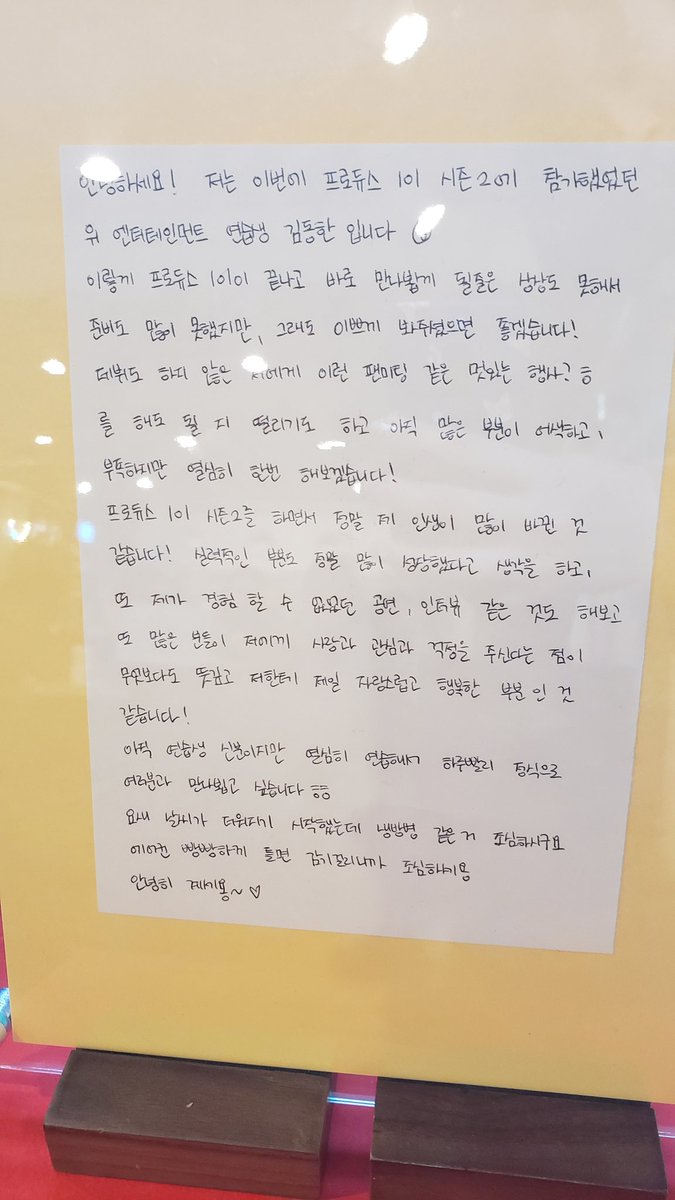 안녕하세요! 저는 이번에 프로듀스 101 시즌2에 참가했었던
위 엔터테인먼트 연습생 김동한 입니다
이렇게 프로듀스 101이 끝나고 바로 만나뵙게 될줄은 상상도 못해서
준비도 많이 못했지만, 그래도 이쁘게 봐주셨으면 좋겠습니다!
데뷔도 하지 않은 저에게 이런 팬미팅 같은 멋있는 행사? ㅎ
를 해도 될 지 떨리기도 하고 아직 많은 부분이 어색하고,
부족하지만 열심히 한번 해보겠습니다!
프로듀스 101 시즌2를 하면서 정말 제 인생이 많이 바뀐 것
같습니다! 실력적인 부분도 정말 많이 성장했다고 생각을 하고,
또 제가 경험 할 수 없었던 공연, 인터뷰 같은 것도 해보고
또 많은 분들이 저에게 사랑과 관심과 걱정을 주신다는 점이
무엇보다도 뜻깊고 저한테 제일 자랑스럽고 행복한 부분 인 것
같습니다!
아직 연습생 신분이지만 열심히 연습해서 하루빨리 정식으로
여러분과 만나뵙고 싶습니다 ㅎㅎ
요새 날씨가 더워지기 시작했는데 냉방병 같은거 조심하시구요
에어컨 빵빵하게 틀면 감기걸리니까 조심하세용
안녕히 계세용~ ♡